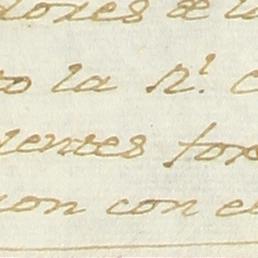 dores de la
to la R.l c
lentes for
ion con el